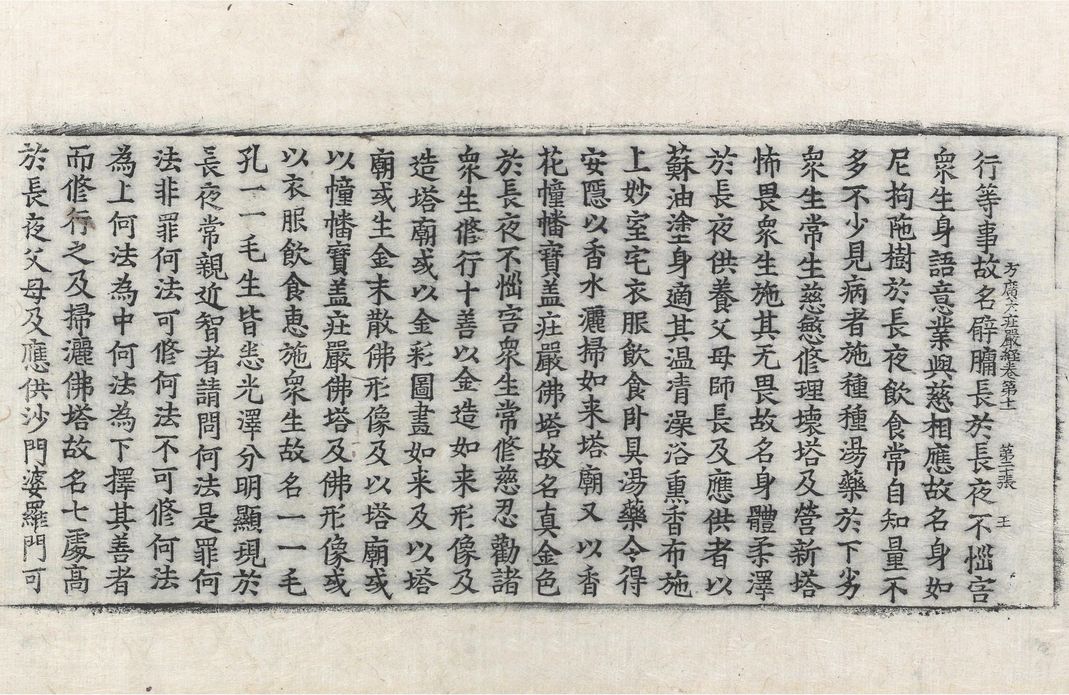 方廣大㽵嚴経卷第十一 第二十張 王
行等事故名臂𦟛長於長夜不惱害
衆生身語意業與慈相應故名身如
尼拘陁樹於長夜飲食常自知量不
多不少見病者施種種湯藥於下劣
衆生常生慈愍修理壞塔及營新塔
怖畏衆生施其无畏故名身體柔澤
於長夜供養父母師長及應供者以
蘇油塗身適其温凊澡浴熏香布施
上妙室宅衣服飲食卧具湯藥令得
安隱以香水灑掃如来塔廟又以香
花幢幡寶盖㽵嚴佛塔故名真金色
於長夜不惱害衆生常修慈忍勸諸
衆生修行十善以金造如来形像及
造塔廟或以金彩圖畫如来及以塔
廟或生金末散佛形像及以塔廟或
以幢幡寶盖㽵嚴佛塔及佛形像或
以衣服飲食惠施衆生故名一一毛
孔一一毛生皆悉光澤分明顯現於
長夜常親近智者請問何法是罪何
法非罪何法可修何法不可修何法
為上何法為中何法為下擇其善者
而修行之及掃灑佛塔故名七處高
於長夜父母及應供沙門婆羅門可